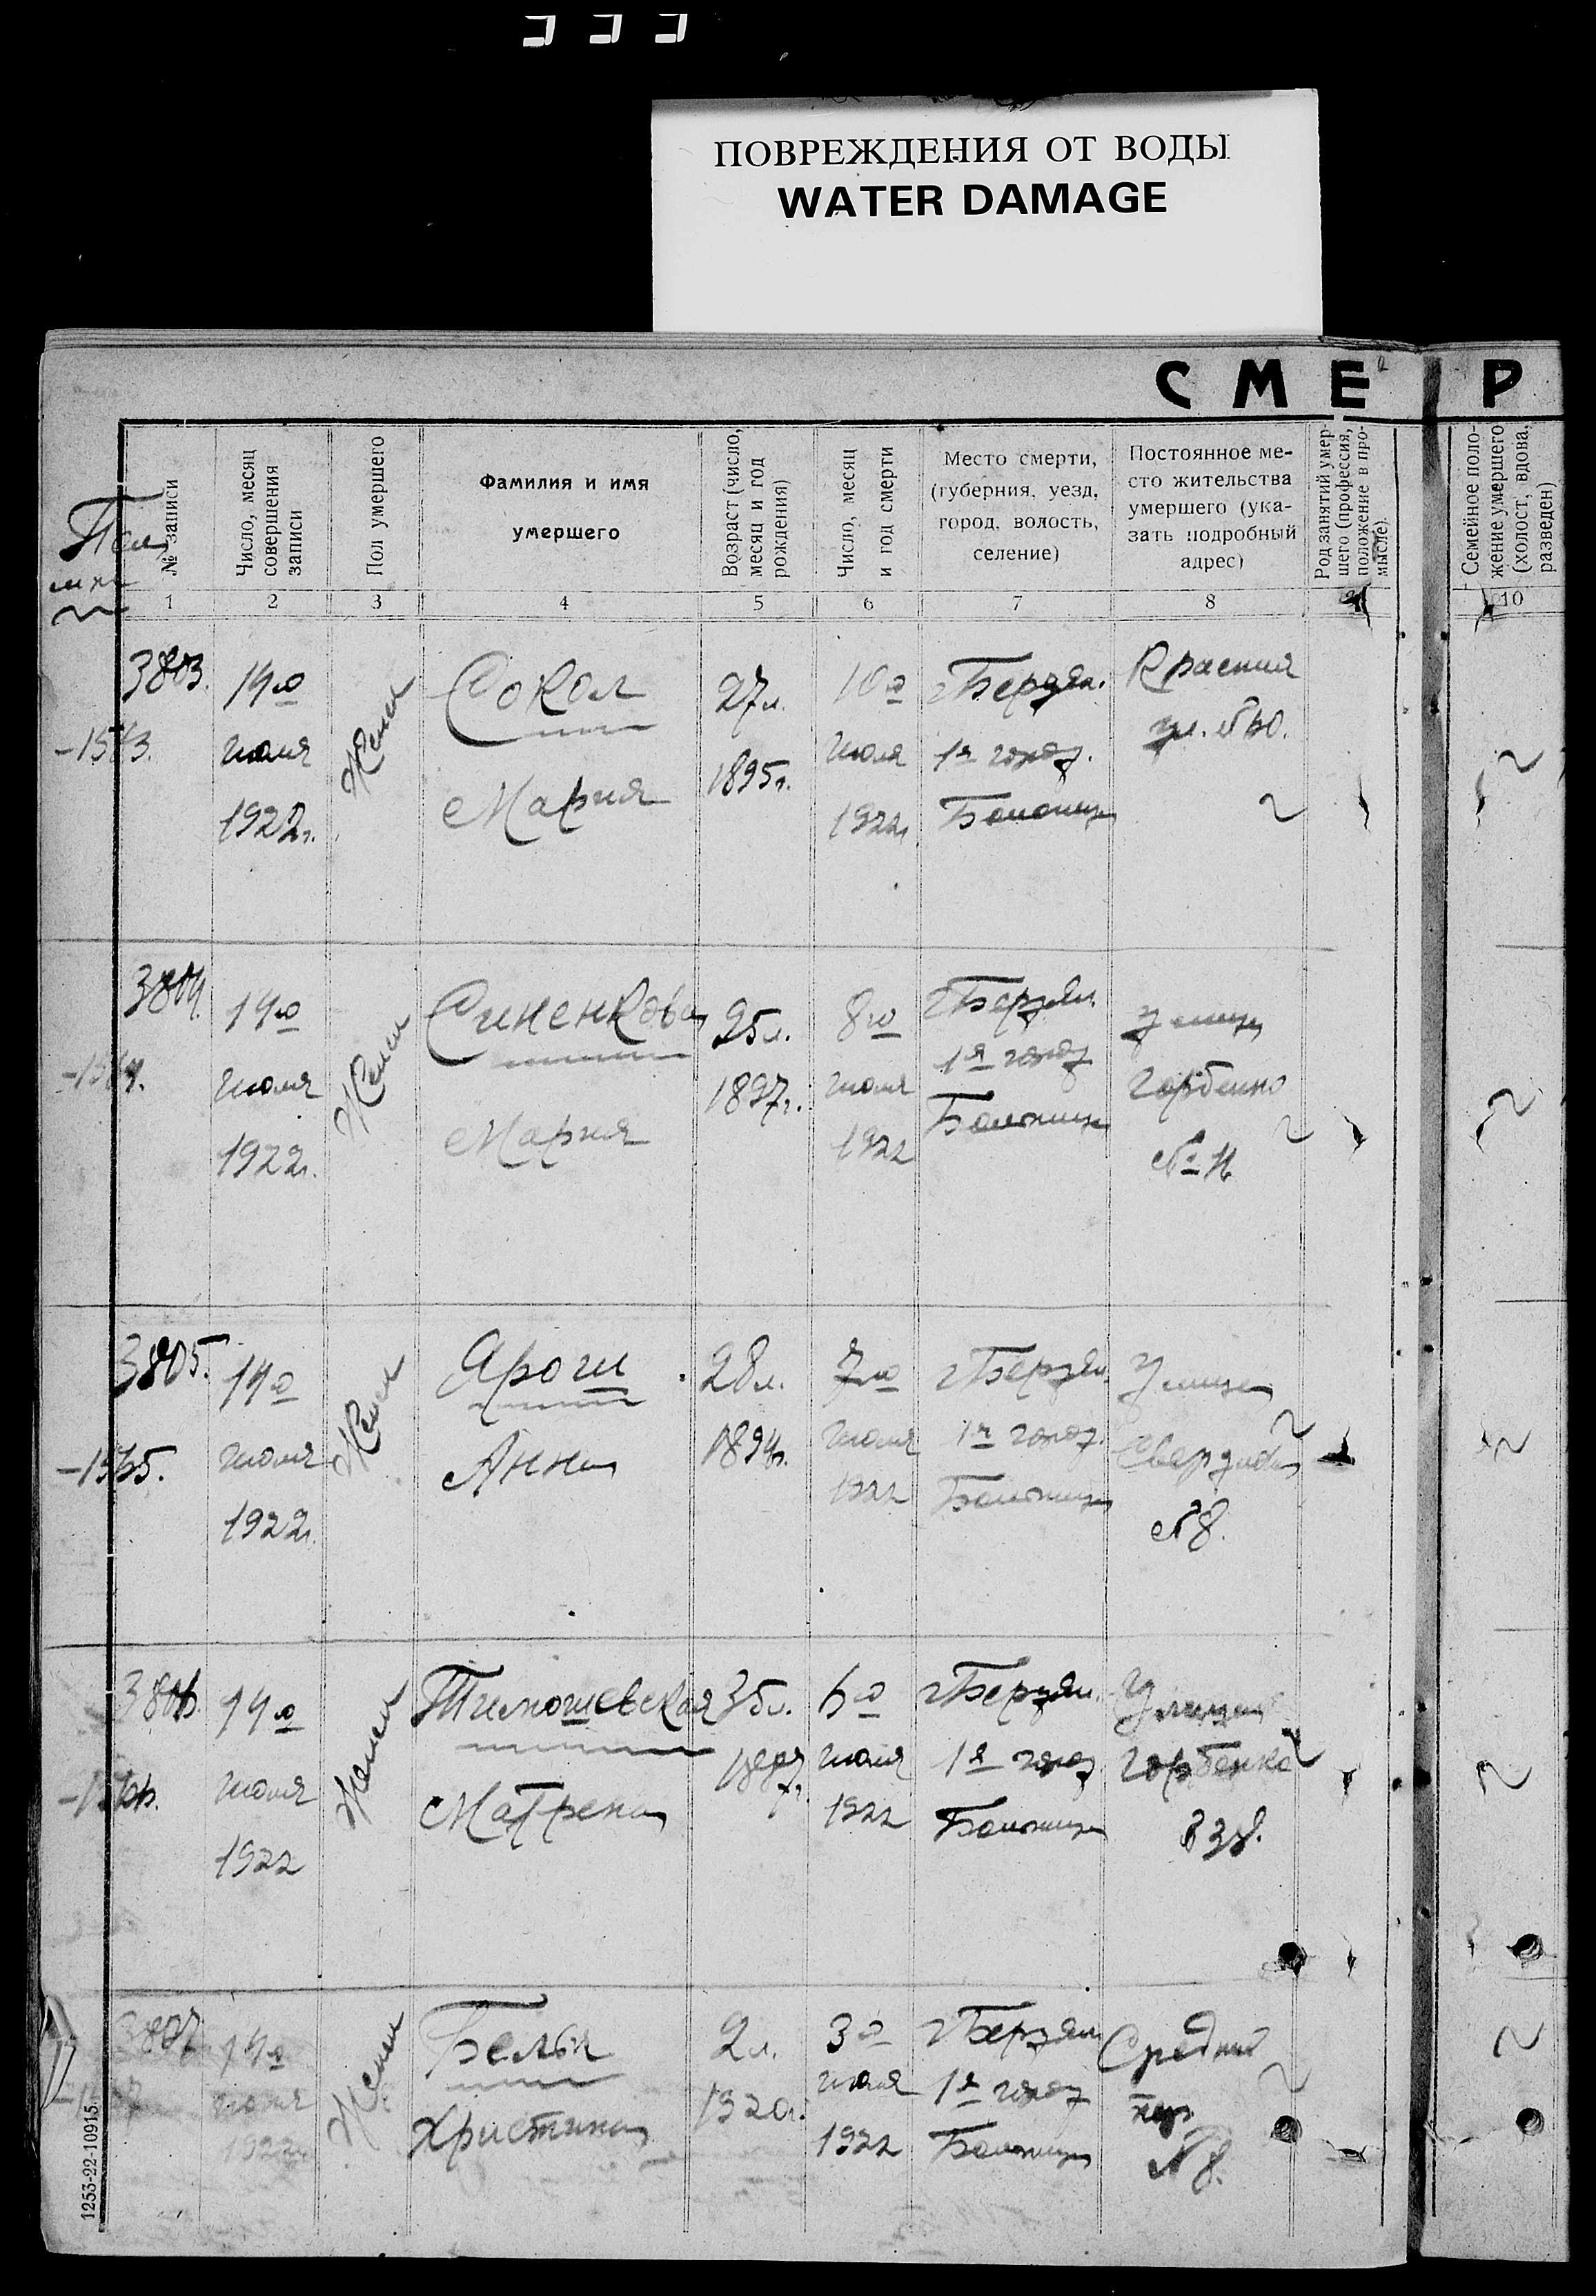 ПОВРЕЖДЕНИЯ ОТ ВОДЫ
WATER DAMAGE
С М Е Р
№ записи
Число, месяц
совершения
записи
Пол умершего
Фамилия и имя
умершего
Возраст (число,
месяц и год
рождения)
Число, месяц
и год смерти
Место смерти,
(губерния, уезд,
город, волость,
селение)
Постоянное ме-
сто жительства
умершего (ука-
зать подробный
адрес)
Род занятий умер-
шего (профессия,
положение в про-
мысле).
Семейное поло-
жение умершего
(холост, вдова,
разведен)
1 2 3 4 5 6 7 8 10
3803. 14го Женск Сокол 27л. 10го г Бердян. Красная
июля 1895г. июля 1я город. ул.
1922г. Мария 1922г Больница
3804. 14го Женск Синенкова 25л. 8го г Бердян. Улица
июля 1897г. июля 1я город Горбенко
1922г. Мария 1922 Больница №
3805. 14го Женск Ярош 28л. 7го г Бердян. Улица
июля Анна 1894г. июля 1я город. Свердлова
1922г. 1922 Больница №8.
3806. 14го Женск Тимошевская 35л. 6го г Бердян. Улица
июля Матрена июля 1я город Горбенко
1922 1922 Больница
3807 14го Женск Белая 2л. 3го г Бердян Средний
июля Христина 1920г. июля 1я город пер
1922г. 1922 Больница №8.
1253-22-10915.